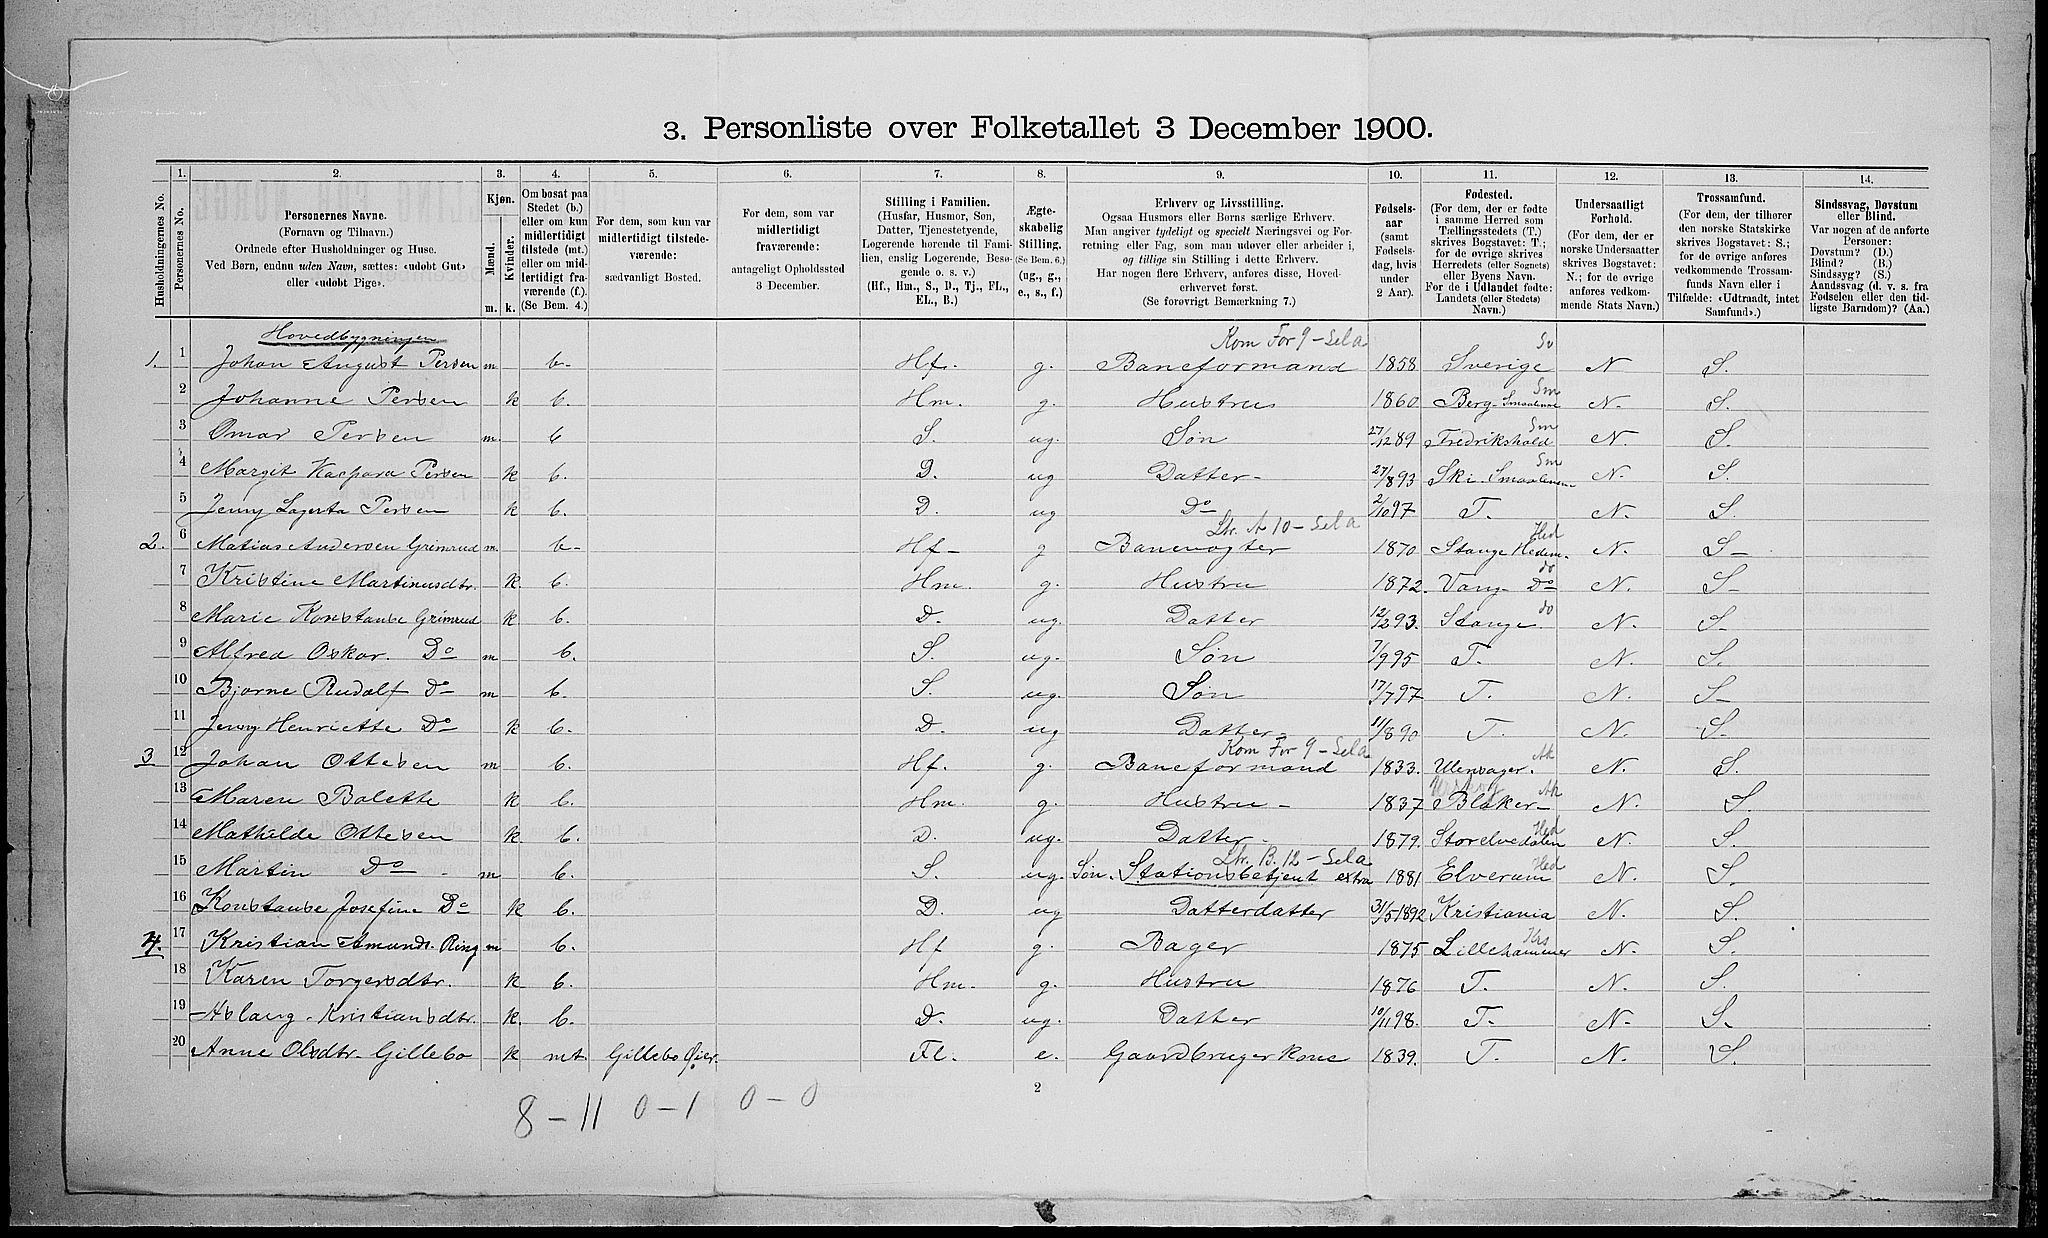 3. Personliste over Folketallet 3 December 1900.
Husholdningernes No.
1. Personernes No.
2. Personernes Navne. (Fornavn og Tilnavn.) Ordnede efter Husholdninger og Huse. Ved Børn, endnu uden Navn, sættes: «udøbt Gut» eller «udøbt Pige».
3. Kjøn. Mænd. Kvinder. m. k.
4. Om bosat paa Stedet (b.) eller om kun midlertidigt tilstede (mt.) eller om midlertidigt fraværende (f.). (Se Bem. 4.)
5. For dem, som kun var midlertidigt tilstedeværende: sædvanligt Bosted.
6. For dem, som var midlertidigt fraværende: antageligt Opholdssted 3 December.
7. Stilling i Familien. (Husfar, Husmor, Søn, Datter, Tjenestetyende, Logerende hørende til Familien, enslig Logerende, Besøgende o. s. v.) (Hf., Hm., S., D., Tj., FL., EL., B.)
8. Ægteskabelig Stilling. (Se Bem. 6.) (ug., g., e., s., f.)
9. Erhverv og Livsstilling. Ogsaa Husmors eller Børns særlige Erhverv. Man angiver tydeligt og specielt Næringsvei og Forretning eller Fag, som man udøver eller arbeider i, og tillige sin Stilling i dette Erhverv. Har nogen flere Erhverv, anføres disse, Hovederhvervet først. (Se forøvrigt Bemærkning 7.)
10. Fødselsaar (samt Fødselsdag, hvis under 2 Aar).
11. Fødested. (For dem, der er fødte i samme Herred som Tællingsstedets (T.) skrives Bogstavet: T.; for de øvrige skrives Herredets (eller Sognets) eller Byens Navn. For de i Udlandet fødte: Landets (eller Stedets) Navn.)
12. Undersaatligt Forhold. (For dem, der er norske Undersaatter skrives Bogstavet: N.; for de øvrige anføres vedkommende Stats Navn.)
13. Trossamfund. (For dem, der tilhører den norske Statskirke skrives Bogstavet: S.; for de øvrige anføres vedkommende Trossamfunds Navn eller i Tilfælde: «Udtraadt, intet Samfund».)
14. Sindssvag, Døvstum eller Blind. Var nogen af de anførte Personer: Døvstum? (D.) Blind? (B.) Sindssyg? (S.) Aandssvag (d. v. s. fra Fødselen eller den tidligste Barndom)? (Aa.)
Hovedbygningen
Kom For 9 - Sela Sv
1. 1 Johan August Persen m b. Hf. g. Baneformand 1858 Sverige N S.
2 Johanne Persen k b. Hm. g. Hustru 1860 Berg Smaalenene Sm N. S.
3 Omar Persen m. b S. ug. Søn 27/12 89 Fredrikshald Sm N. S.
4 Margit Kaspara Persen k b. D. ug Datter 27/8 93 Ski Smaalenene Sm N. S.
5 Jenny Lagerta Persen k b. D. ug Do 2/10 97 T. N. S.
Ltr. A 10 - Sela
2. 6 Matias Andersen Grimsrud m. b. Hf g Banevogter 1870 Stange Hedem. Hed N. S
7 Kristine Martinusdtr. k b. Hm. g. Hustru 1872. Vang Do do N. S
8 Marie Konstanse Grimsrud k b. D. ug. Datter 12/2 93. Stange do N. S
9 Alfred Oskar. Do m b. S. ug. Søn 7/9 95 T. N. S.
10 Bjarne Rudolf do m b. S. ug. Søn 17/7 97 T. N. S
11 Jenny Henriette Do k b. D. ug Datter 11/8 90 T. N. S
Kom For 9 - Sela
3 12 Johan Ottesen m b. Hf. g. Baneformand 1833. Ulensager. Ak N. S.
13 Maren Bolette k b. Hm. g. Hustru 1837 Blaker Ak N. S
14 Mathilde Ottesen k. b. D. ug. Datter 1879. Storelvedalen Hed N. S.
Ltr. B. 12 - Sela
15 Martin Do m b. S. ug. Søn. Stationsbetjent extra 1881 Elverum Hed N. S.
16 Konstanse Josefine Do k b. D. ug Datterdatter 31/5 1892 Kristiania N. S.
4. 17 Kristian Amunds. Ring m b. Hf g. Bager 1875 Lillehammer Kr's N. S.
18 Karen Torgersdtr. k b. Hm. g. Hustru 1876 T. N. S.
19 Aslaug Kristiansdtr. k. b. D. ug. Datter 10/11 98. T. N. S.
20 Anne Olsdtr. Gillebo k mt Gillebo Øier. Fl. e. Gaardbruger kone 1839. T. N. S.
2
8 - 11 0 - 1 0 - 0